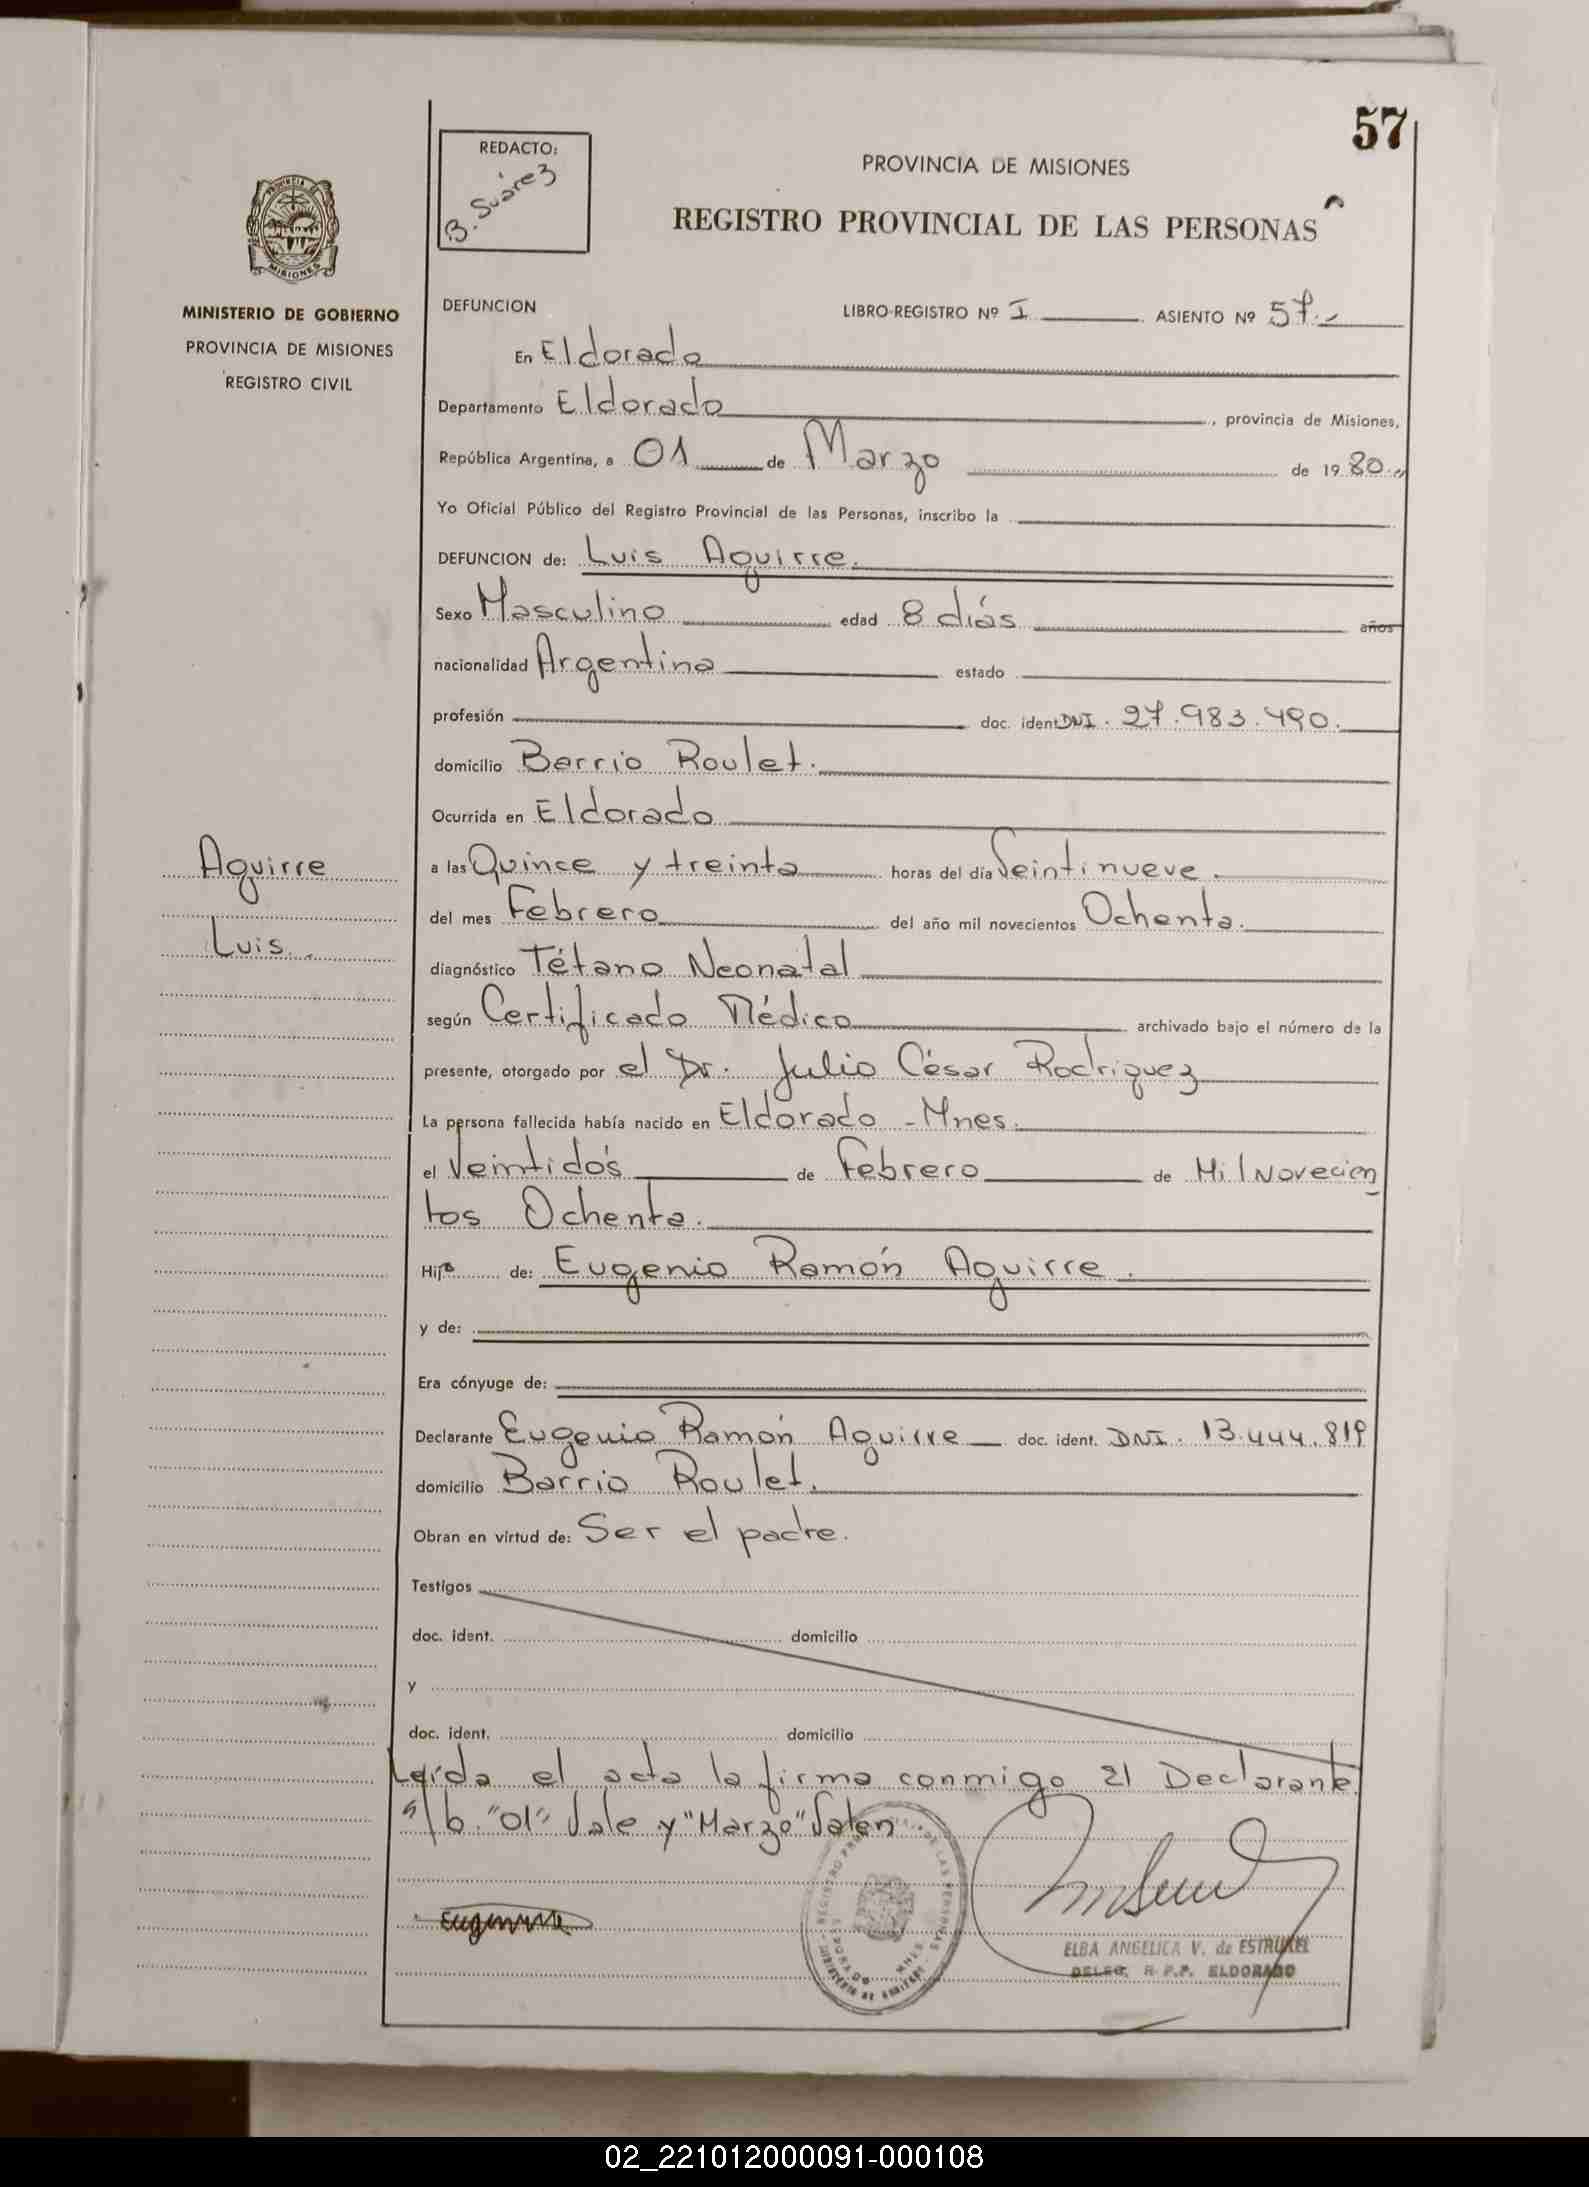 57
REDACTO:
B. Suárez
PROVINCIA DE MISIONES
REGISTRO PROVINCIAL DE LAS PERSONAS
MISIONES
MINISTERIO DE GOBIERNO
PROVINCIA DE MISIONES
REGISTRO CIVIL
DEFUNCION LIBRO-REGISTRO Nº I ASIENTO Nº 57.-
En Eldorado
Departamento Eldorado, provincia de Misiones,
República Argentina, a 01 de Marzo de 1980.-
Yo Oficial Público del Registro Provincial de las Personas, inscribo la
DEFUNCION de: Luis Aguirre.
Sexo Masculino edad 8 diás años
nacionalidad Argentina estado
profesión doc. ident DNI. 27.983.490.
domicilio Barrio Roulet.
Ocurrida en Eldorado
Aguirre
Luis.
a las Quince y treinta horas del día Veintinueve.
del mes Febrero del año mil novecientos Ochenta.
diagnóstico Tétano Neonatal
según Certificado Médico archivado bajo el número de la
presente, otorgado por el Dr. Julio César Rodriguez
La persona fallecida había nacido en Eldorado -Mnes.
el Veintidós de Febrero de Mil Novecien
tos Ochenta.
Hijo de: Eugenio Ramón Aguirre.
y de:
Era cónyuge de:
Declarante Eugenio Ramón Aguirre doc. ident. DNI. 13.444.819
domicilio Barrio Roulet.
Obran en virtud de: Ser el padre.
Testigos
doc. ident. domicilio
y
doc. ident. domicilio
Leída el acta la firma conmigo el Declarante
s/b. "01" Vale y "Marzo" Valen
ELBA ANGELICA V. de ESTRUXEL
DELEG. R.P.P. ELDORADO
02_221012000091-000108